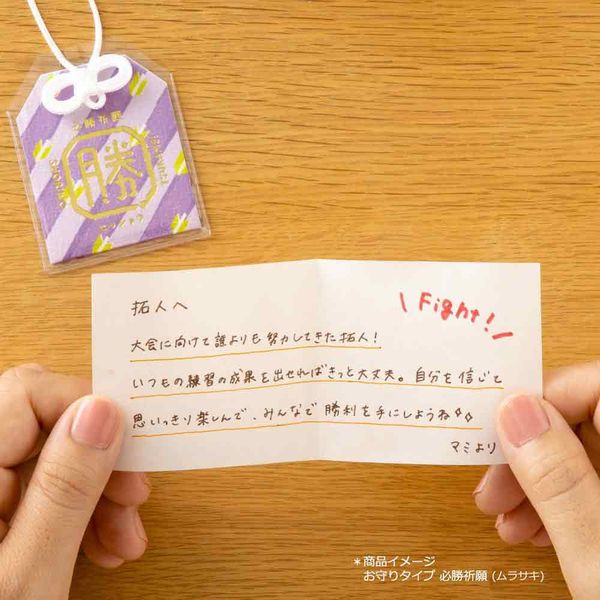 必勝祈願
勝
拓人へ
\ Fight! /
大会に向けて誰よりも努力してきた拓人!
いつもの練習の成果を出せればきっと大丈夫。自分を信じて
思いっきり楽しんで、みんなで勝利を手にしようね
マミより
*商品イメージ
お守りタイプ 必勝祈願 (ムラサキ)